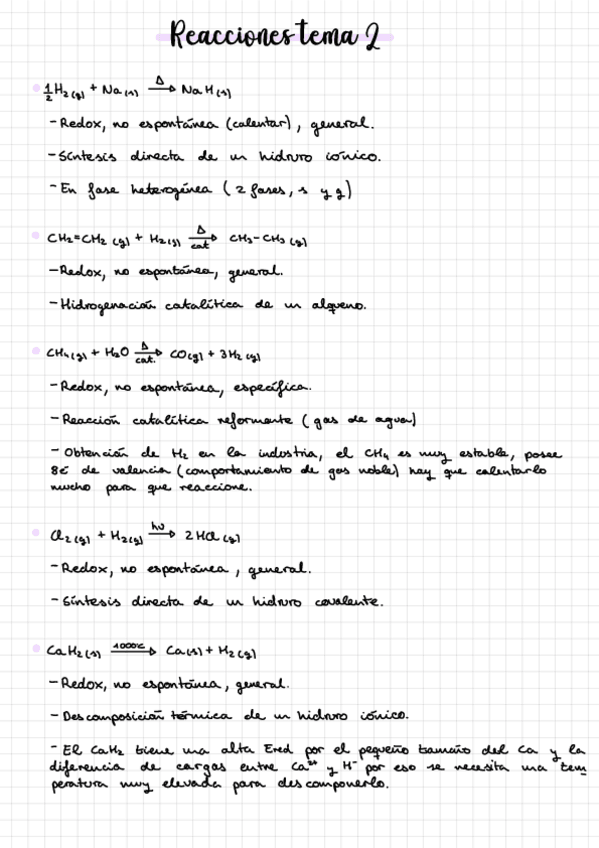 Reacciones tema 2
½H₂(g) + Na(s) —Δ→ NaH(s)
- Redox, no espontánea (calentar), general.
- Síntesis directa de un hidruro iónico.
- En fase heterogénea (2 fases, s y g)
CH₂=CH₂ (g) + H₂(g) —Δ/cat→ CH₃-CH₃ (g)
- Redox, no espontánea, general.
- Hidrogenación catalítica de un alqueno.
CH₄(g) + H₂O —Δ/cat.→ CO(g) + 3H₂(g)
- Redox, no espontánea, específica.
- Reacción catalítica reformente (gas de agua)
- Obtención de H₂ en la industria, el CH₄ es muy estable, posee
8ē de valencia (comportamiento de gas noble) hay que calentarlo
mucho para que reaccione.
Cl₂(g) + H₂(g) —hν→ 2HCl(g)
- Redox, no espontánea, general.
- Síntesis directa de un hidruro covalente.
CaH₂(s) —1000ºC→ Ca(s) + H₂(g)
- Redox, no espontánea, general.
- Descomposición térmica de un hidruro iónico.
- El CaH₂ tiene una alta Ered por el pequeño tamaño del Ca y la
diferencia de cargas entre Ca²⁺ y H⁻ por eso se necesita una tem
peratura muy elevada para descomponerlo.